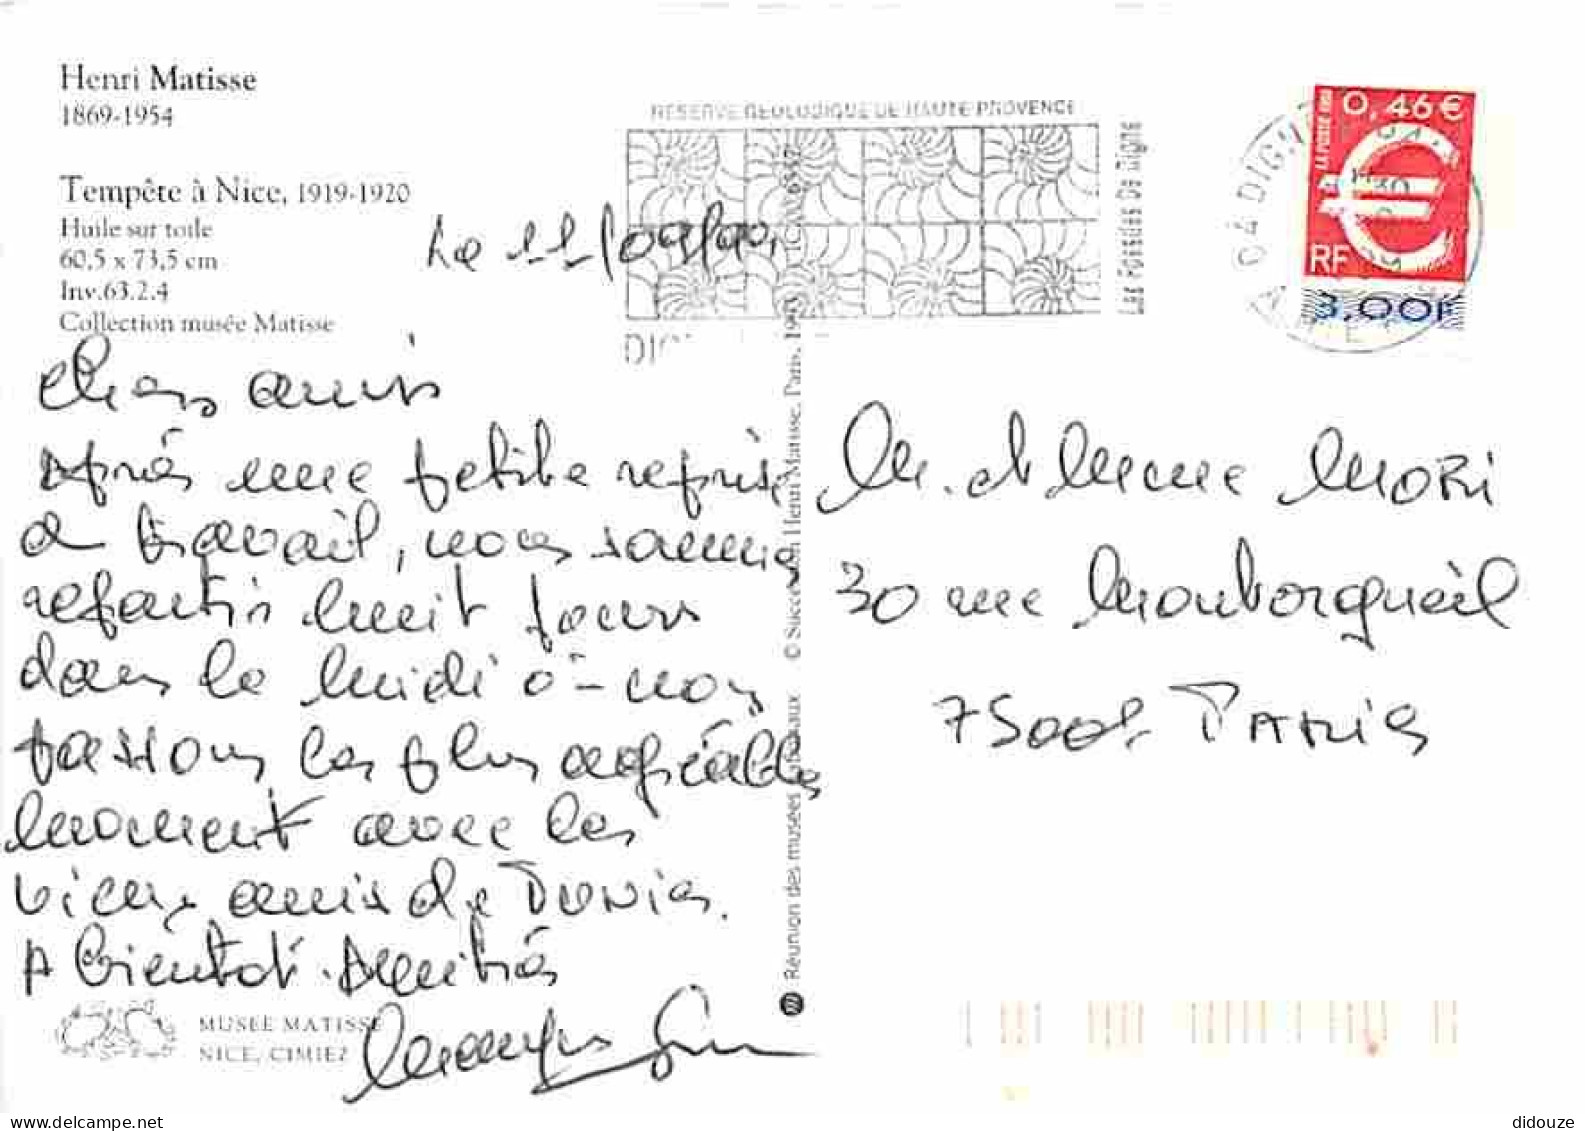 Henri Matisse
1869-1954
Tempête à Nice, 1919-1920
Huile sur toile
60,5 x 73,5 cm
Inv.63.2.4
Collection musée Matisse
RESERVE GEOLOGIQUE DE HAUTE PROVENCE
Les Fossiles De Digne
LA POSTE 1999
0,46 €
RF
3,00F
04 DIGNE
Le 11/09/00
Chers amis
Après une petite reprise
de travail, nous sommes
repartis huit jours
dans le midi où nous
passons les plus agréables
moment avec les
vieux amis de Tunis.
A bientôt. Amitiés
M. et Mme MORI
30 rue Montorgueil
75001 PARIS
© Succession Henri Matisse, Paris,
Réunion des musées nationaux
MUSEE MATISSE
NICE, CIMIEZ
didouze